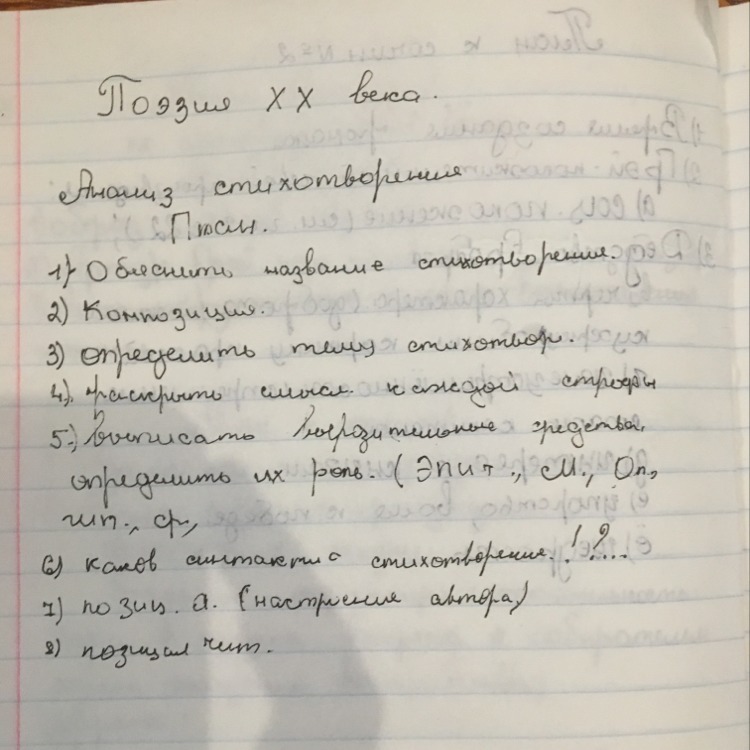 Поэзия XX века.
Анализ стихотворения
План.
1) Объяснить название стихотворения.
2) Композиция.
3) определить тему стихотвор.
4). раскрыть смысл каждой строфы
5.) Выписать выразительные средства,
определить их роль. (Эпит., М., Ол.,
гип., ср.,
6) каков синтаксис стихотворения. !?...
7) позиц. а. (настроение автора)
8) позиция чит.